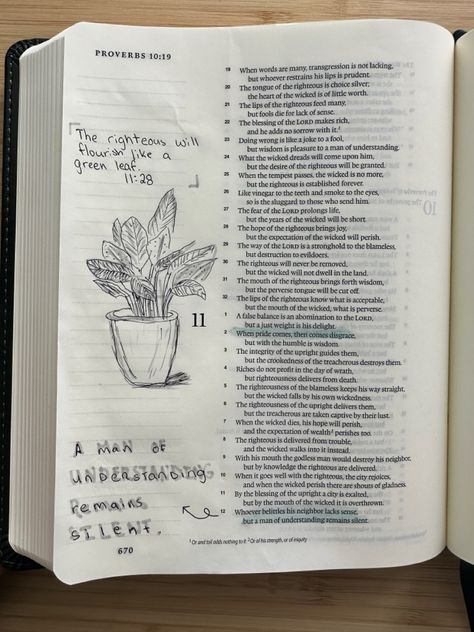 PROVERBS 10:19
The righteous will
flourish like a
green leaf.
11:28
A MAN OF
UNDERSTANDING
Remains
SILENT.
19 When words are many, transgression is not lacking,
but whoever restrains his lips is prudent.
20 The tongue of the righteous is choice silver;
the heart of the wicked is of little worth.
21 The lips of the righteous feed many,
but fools die for lack of sense.
22 The blessing of the LORD makes rich,
and he adds no sorrow with it.¹
23 Doing wrong is like a joke to a fool,
but wisdom is pleasure to a man of understanding.
24 What the wicked dreads will come upon him,
but the desire of the righteous will be granted.
25 When the tempest passes, the wicked is no more,
but the righteous is established forever.
26 Like vinegar to the teeth and smoke to the eyes,
so is the sluggard to those who send him.
27 The fear of the LORD prolongs life,
but the years of the wicked will be short.
28 The hope of the righteous brings joy,
but the expectation of the wicked will perish.
29 The way of the LORD is a stronghold to the blameless,
but destruction to evildoers.
30 The righteous will never be removed,
but the wicked will not dwell in the land.
31 The mouth of the righteous brings forth wisdom,
but the perverse tongue will be cut off.
32 The lips of the righteous know what is acceptable,
but the mouth of the wicked, what is perverse.
11
1 A false balance is an abomination to the LORD,
but a just weight is his delight.
2 When pride comes, then comes disgrace,
but with the humble is wisdom.
3 The integrity of the upright guides them,
but the crookedness of the treacherous destroys them.
4 Riches do not profit in the day of wrath,
but righteousness delivers from death.
5 The righteousness of the blameless keeps his way straight,
but the wicked falls by his own wickedness.
6 The righteousness of the upright delivers them,
but the treacherous are taken captive by their lust.
7 When the wicked dies, his hope will perish,
and the expectation of wealth² perishes too.
8 The righteous is delivered from trouble,
and the wicked walks into it instead.
9 With his mouth the godless man would destroy his neighbor,
but by knowledge the righteous are delivered.
10 When it goes well with the righteous, the city rejoices,
and when the wicked perish there are shouts of gladness.
11 By the blessing of the upright a city is exalted,
but by the mouth of the wicked it is overthrown.
12 Whoever belittles his neighbor lacks sense,
but a man of understanding remains silent.
¹ Or and toil adds nothing to it ² Or of his strength, or of iniquity
670